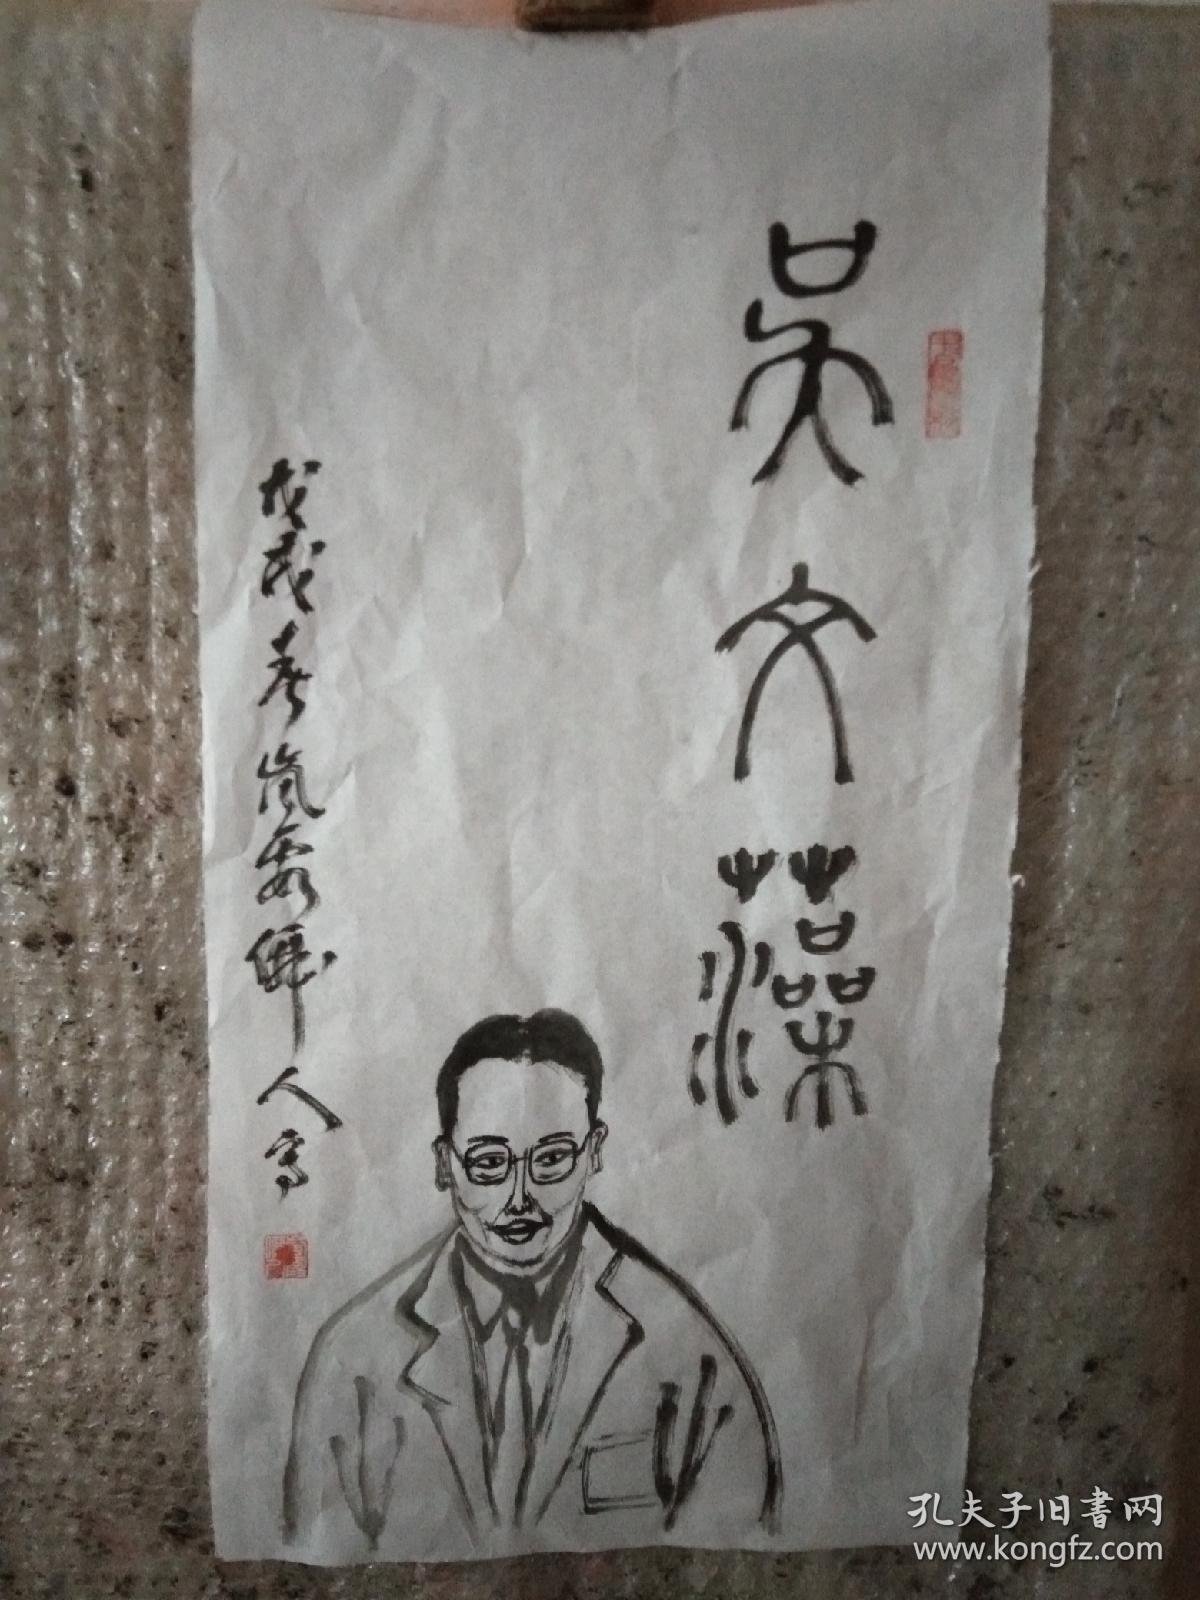 吴文藻
戊戌春岚霞佛人写
孔夫子旧書网
www.kongfz.com